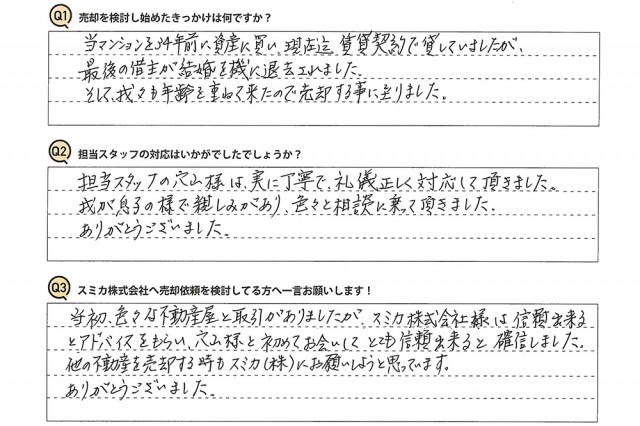 Q1 売却を検討し始めたきっかけは何ですか?
当マンションを24年前に資産に買い、現在迄 賃貸契約で貸していましたが、
最後の借主が結婚を機に退去されました。
そして、我々も年齢を重ねて来たので売却する事に至りました。
Q2 担当スタッフの対応はいかがでしたでしょうか?
担当スタッフの穴山様は、実に丁寧で、礼儀正しく対応して頂きました。
我が息子の様で親しみがあり、色々と相談に乗って頂きました。
ありがとうございました。
Q3 スミカ株式会社へ売却依頼を検討してる方へ一言お願いします!
当初、色々な不動産屋と取引がありましたが、スミカ株式会社様は信頼出来る
とアドバイスをもらい、穴山様と初めてお会いして とても信頼出来ると確信しました。
他の不動産を売却する時もスミカ(株)にお願いしようと思っています。
ありがとうございました。